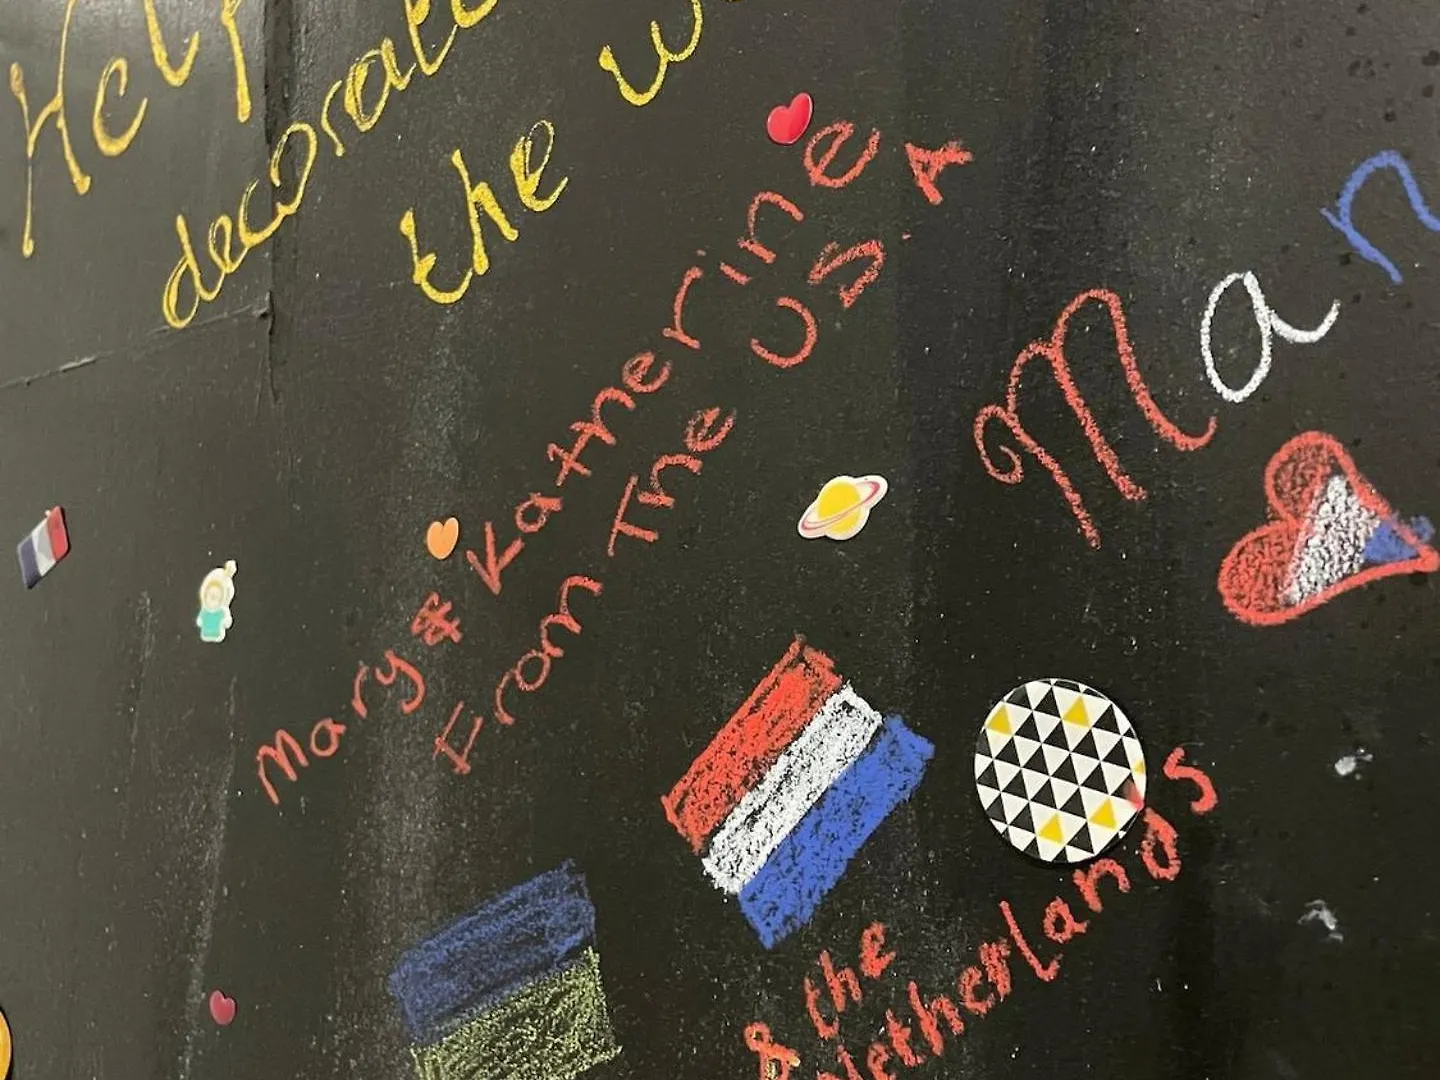 Help
decorate
the
Mary & Katherine
From The USA
Man
& the
Netherlands